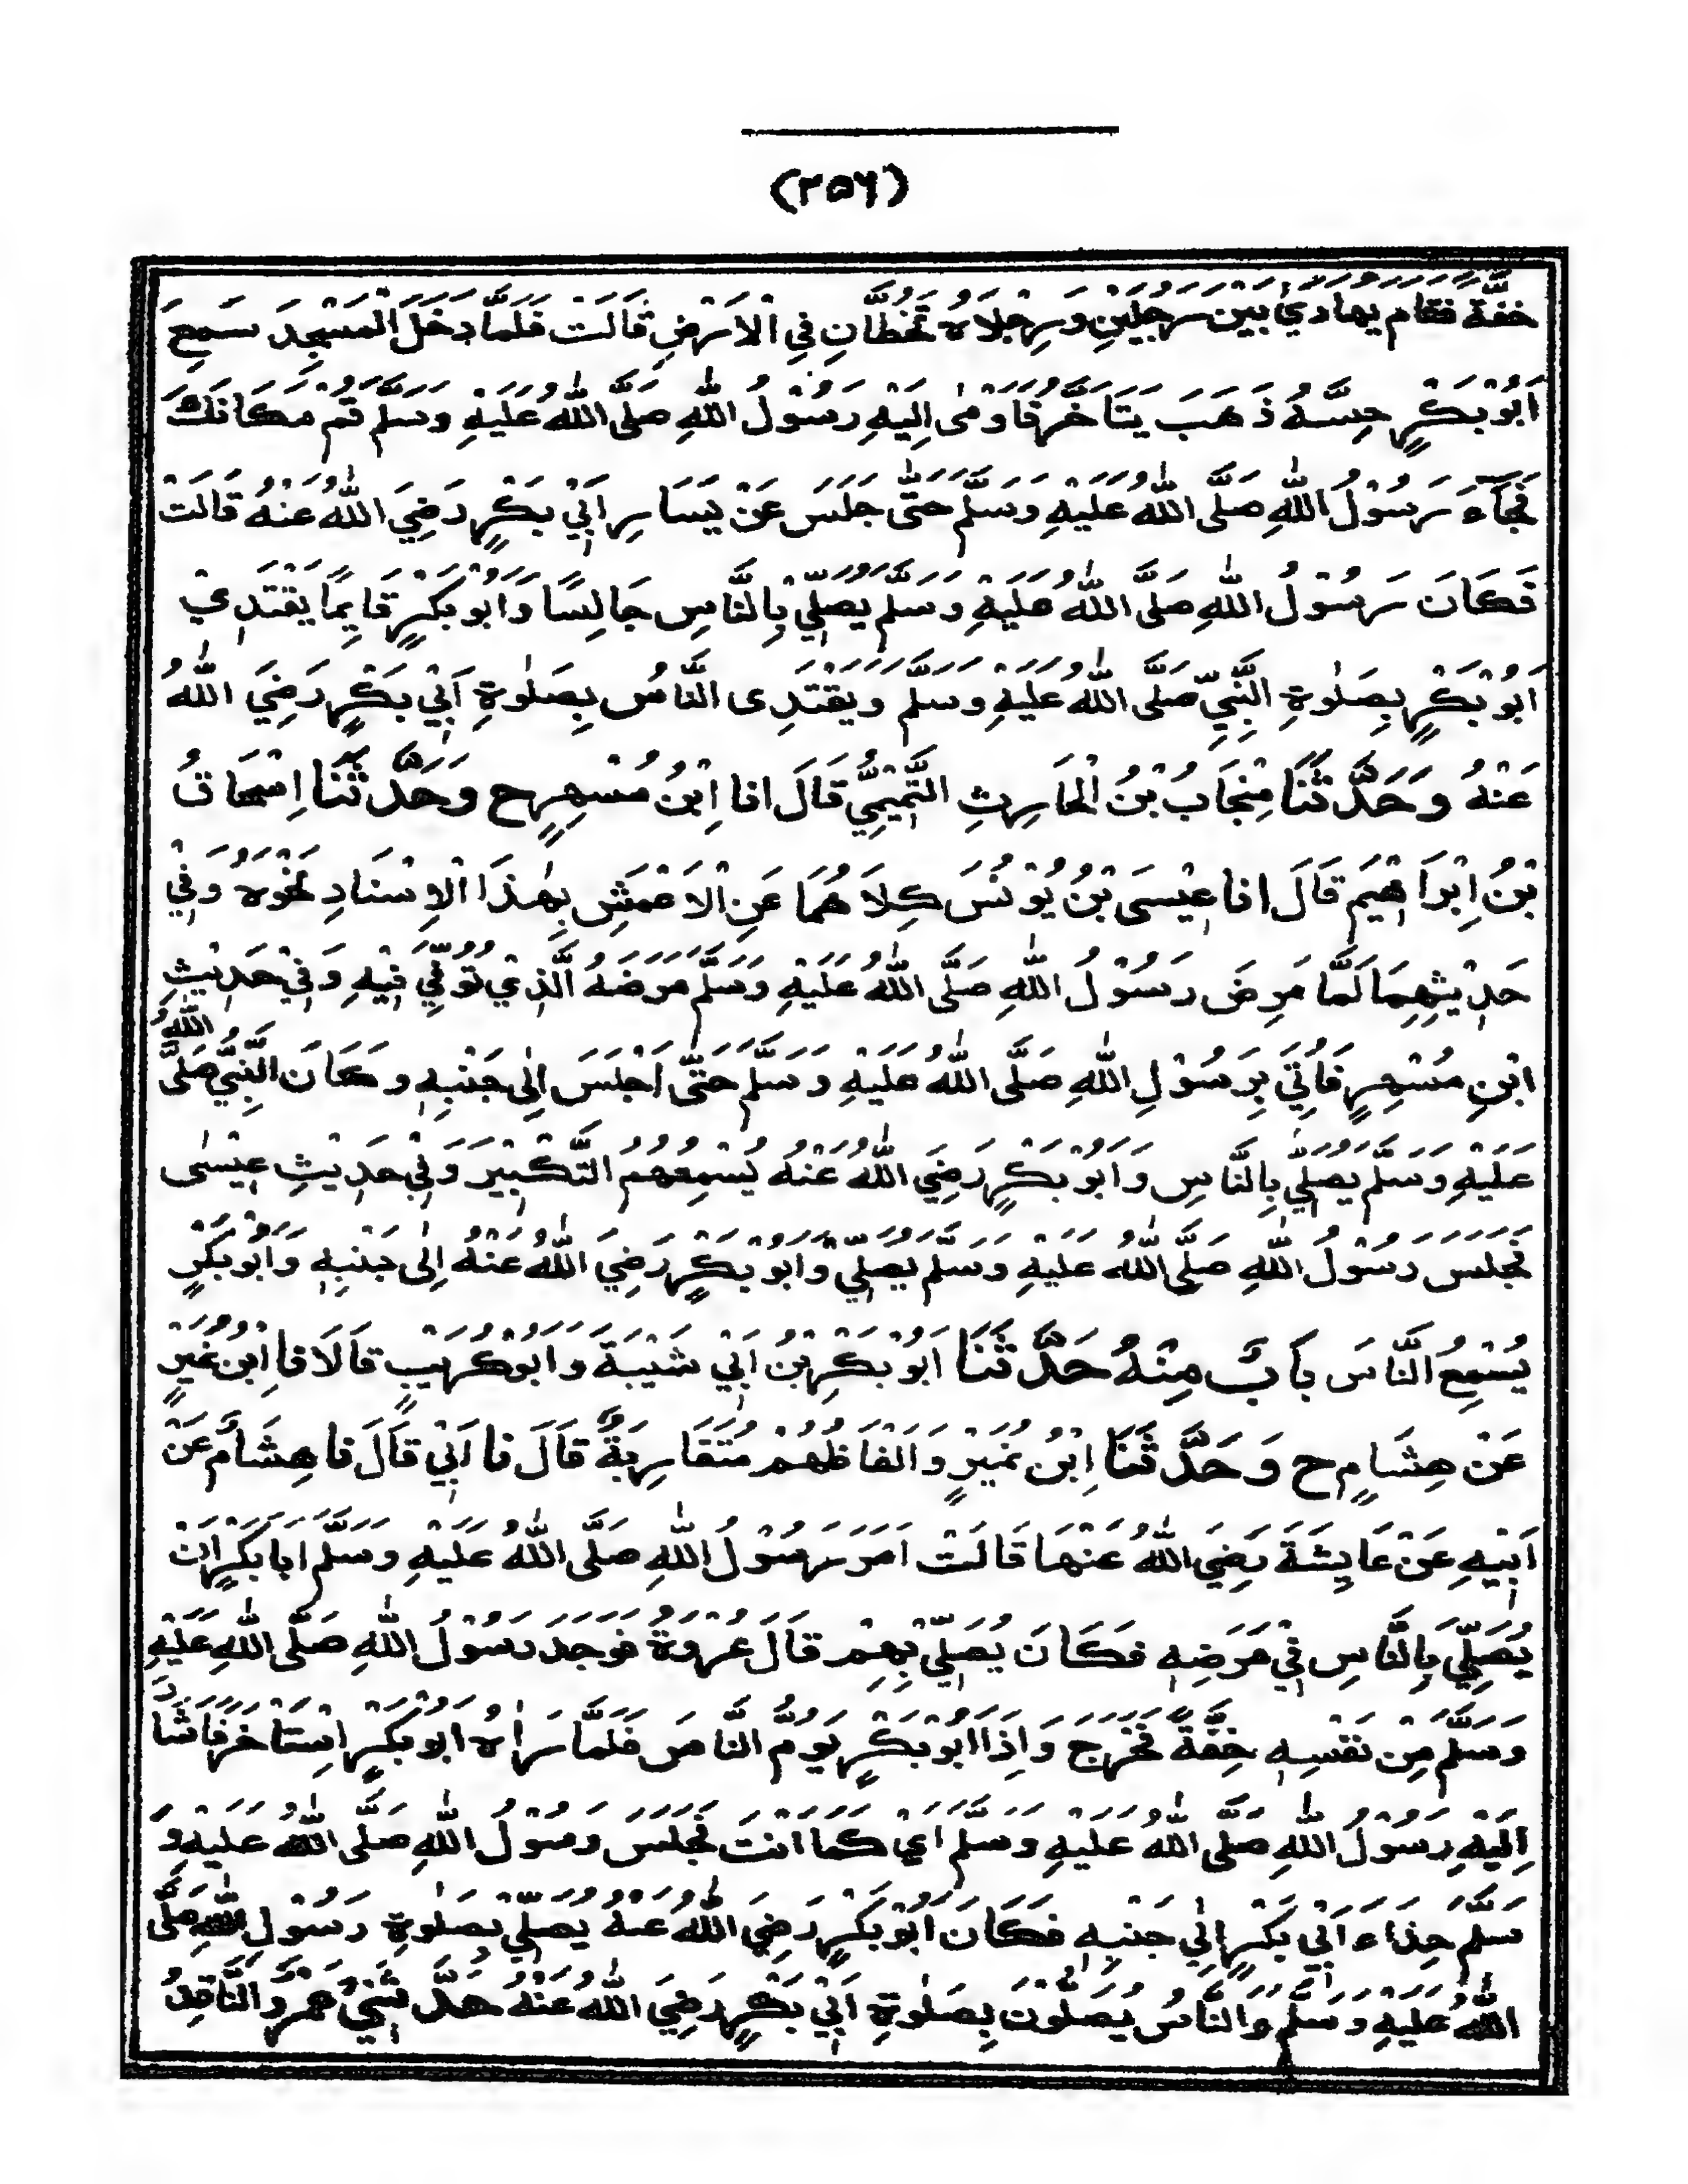 (۲۵۶)
خِفَّةً فَقَامَ يُهَادَيْ بَيْنَ رَجُلَيْنِ وَرِجْلَاهُ تَخُطَّانِ فِي الْاَرْضِ قَالَتْ فَلَمَّا دَخَلَ الْمَسْجِدَ سَمِعَ
اَبُوْ بَكْرٍ حِسَّهُ ذَهَبَ يَتَاَخَّرُ فَاَوْمٰى اِلَيْهِ رَسُوْلُ اللّٰهِ صَلَّى اللّٰهُ عَلَيْهِ وَسَلَّمَ قُمْ مَكَانَكَ
فَجَآءَ رَسُوْلُ اللّٰهِ صَلَّى اللّٰهُ عَلَيْهِ وَسَلَّمَ حَتّٰى جَلَسَ عَنْ يَّسَارِ اَبِيْ بَكْرٍ رَضِيَ اللّٰهُ عَنْهُ قَالَتْ
فَكَانَ رَسُوْلُ اللّٰهِ صَلَّى اللّٰهُ عَلَيْهِ وَسَلَّمَ يُصَلِّيْ بِالنَّاسِ جَالِسًا وَاَبُوْ بَكْرٍ قَايِمًا يَقْتَدِيْ
اَبُوْ بَكْرٍ بِصَلٰوةِ النَّبِيِّ صَلَّى اللّٰهُ عَلَيْهِ وَسَلَّمَ وَيَقْتَدِى النَّاسُ بِصَلٰوةِ اَبِيْ بَكْرٍ رَضِيَ اللّٰهُ
عَنْهُ وَحَدَّثَنَا مِنْجَابُ بْنُ الْحَارِثِ التَّمِيْمِيُّ قَالَ انا اِبْنُ مُسْهِرٍ ح وَحَدَّثَنَا اِسْحَاقُ
بْنُ اِبْرَاهِيْمَ قَالَ انا عِيْسَى بْنُ يُوْنُسَ كِلَاهُمَا عَنِ الْاَعْمَشِ بِهٰذَا الْاِسْنَادِ نَحْوَهُ وَفِيْ
حَدِيْثِهِمَا لَمَّا مَرِضَ رَسُوْلُ اللّٰهِ صَلَّى اللّٰهُ عَلَيْهِ وَسَلَّمَ مَرَضَهُ الَّذِيْ تُوُفِّيَ فِيْهِ وَفِيْ حَدِيْثِ
ابْنِ مُسْهِرٍ فَاُتِيَ بِرَسُوْلِ اللّٰهِ صَلَّى اللّٰهُ عَلَيْهِ وَسَلَّمَ حَتّٰى اُجْلِسَ اِلٰى جَنْبِهٖ وَكَانَ النَّبِيُّ صَلَّى اللّٰهُ
عَلَيْهِ وَسَلَّمَ يُصَلِّيْ بِالنَّاسِ وَاَبُوْ بَكْرٍ رَضِيَ اللّٰهُ عَنْهُ يُسْمِعُهُمُ التَّكْبِيْرَ وَفِيْ حَدِيْثِ عِيْسٰى
فَجَلَسَ رَسُوْلُ اللّٰهِ صَلَّى اللّٰهُ عَلَيْهِ وَسَلَّمَ يُصَلِّيْ وَاَبُوْ بَكْرٍ رَضِيَ اللّٰهُ عَنْهُ اِلٰى جَنْبِهٖ وَاَبُوْ بَكْرٍ
يُسْمِعُ النَّاسَ بَابٌ مِنْهُ حَدَّثَنَا اَبُوْ بَكْرِ بْنُ اَبِيْ شَيْبَةَ وَاَبُوْ كُرَيْبٍ قَالَا نا اِبْنُ نُمَيْرٍ
عَنْ هِشَامٍ ح وَحَدَّثَنَا اِبْنُ نُمَيْرٍ وَاَلْفَاظُهُمْ مُتَقَارِبَةٌ قَالَ نا اَبِيْ قَالَ نا هِشَامٌ عَنْ
اَبِيْهِ عَنْ عَايِشَةَ رَضِيَ اللّٰهُ عَنْهَا قَالَتْ اَمَرَ رَسُوْلُ اللّٰهِ صَلَّى اللّٰهُ عَلَيْهِ وَسَلَّمَ اَبَا بَكْرٍ اَنْ
يُصَلِّيَ بِالنَّاسِ فِيْ مَرَضِهٖ فَكَانَ يُصَلِّيْ بِهِمْ قَالَ عُرْوَةُ فَوَجَدَ رَسُوْلُ اللّٰهِ صَلَّى اللّٰهُ عَلَيْهِ
وَسَلَّمَ مِنْ نَفْسِهٖ خِفَّةً فَخَرَجَ وَاِذَا اَبُوْ بَكْرٍ يَؤُمُّ النَّاسَ فَلَمَّا رَاٰهُ اَبُوْ بَكْرٍ اِسْتَاْخَرَ فَاَشَارَ
اِلَيْهِ رَسُوْلُ اللّٰهِ صَلَّى اللّٰهُ عَلَيْهِ وَسَلَّمَ اَيْ كَمَا اَنْتَ فَجَلَسَ رَسُوْلُ اللّٰهِ صَلَّى اللّٰهُ عَلَيْهِ وَ
سَلَّمَ حِذَاءَ اَبِيْ بَكْرٍ اِلٰي جَنْبِهٖ فَكَانَ اَبُوْ بَكْرٍ رَضِيَ اللّٰهُ عَنْهُ يُصَلِّيْ بِصَلٰوةِ رَسُوْلِ اللّٰهِ صَلَّى
اللّٰهُ عَلَيْهِ وَسَلَّمَ وَالنَّاسُ يُصَلُّوْنَ بِصَلٰوةِ اَبِيْ بَكْرٍ رَضِيَ اللّٰهُ عَنْهُ حَدَّثَنِيْ عَمْرُو النَّاقِدُ